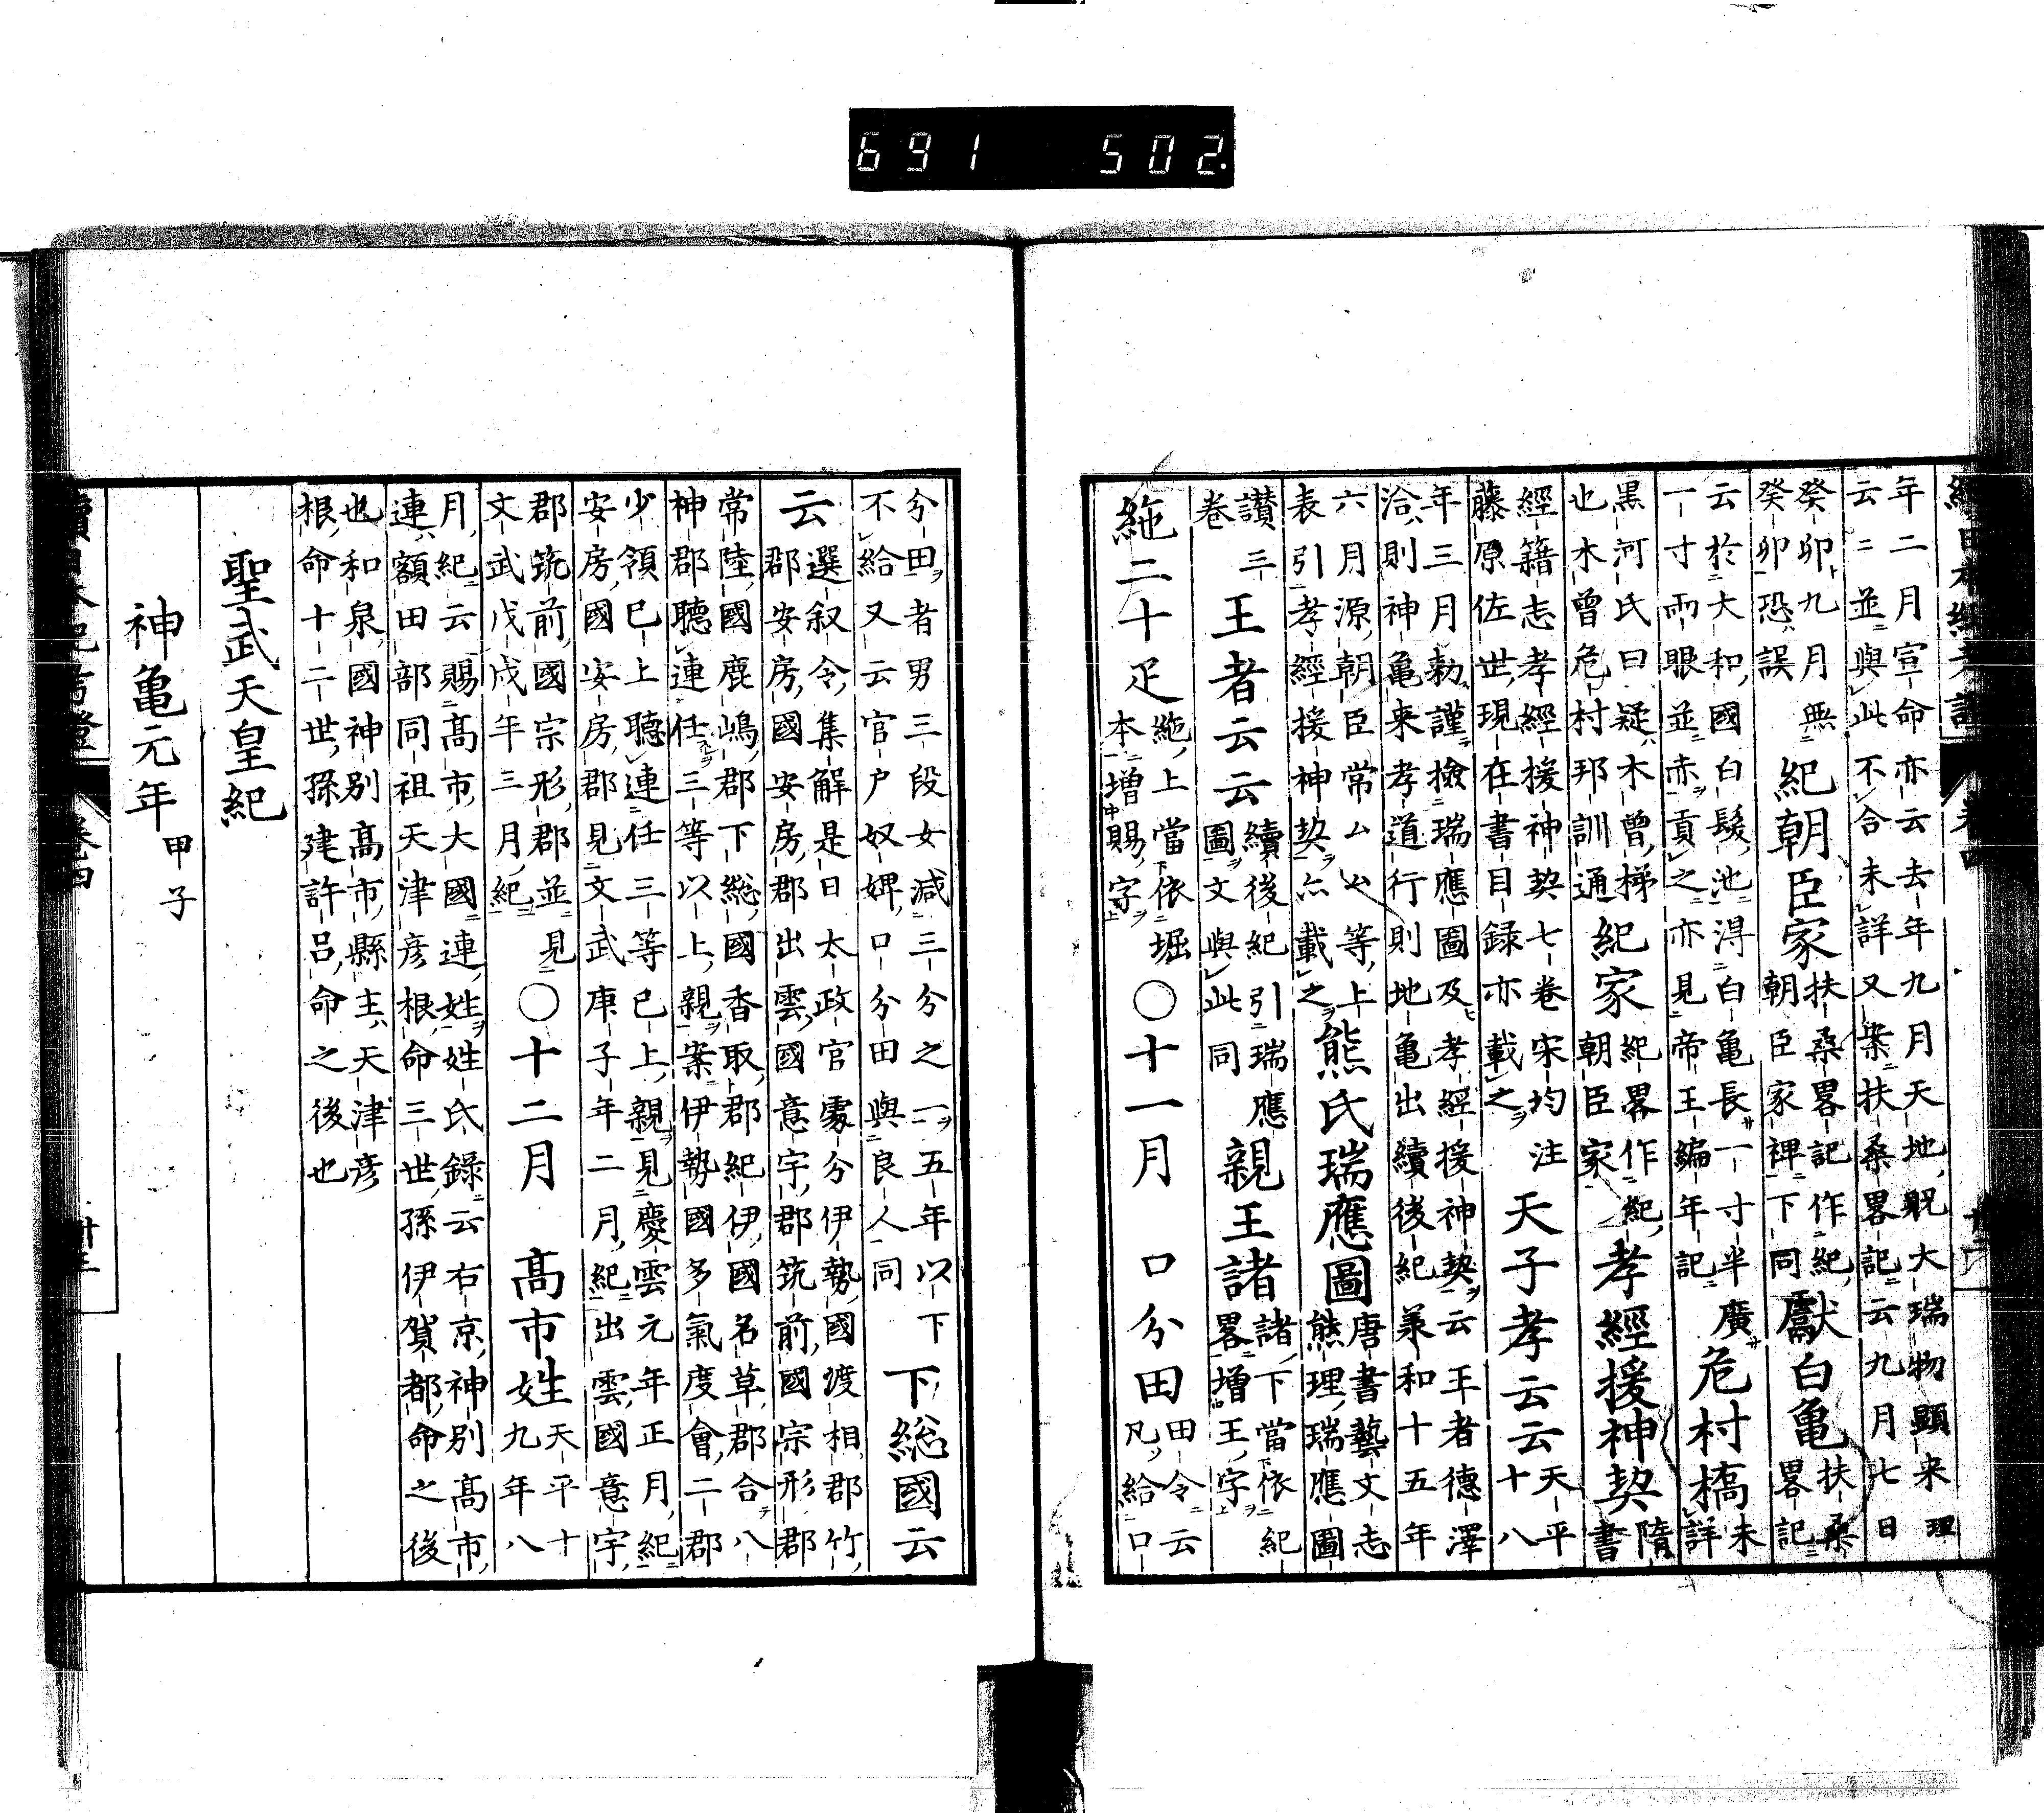 691 502
年二月宣命亦云去年九月天地貺大瑞物顕来理
云〻並與此不合未詳又案扶桑畧記云九月七日
癸卯九月無
癸卯恐誤
紀朝臣家
扶桑畧記作紀
朝臣家禆下同
獻白亀
扶桑
畧記
云於大和國白髪池得白亀長一寸半廣
一寸両眼並赤貢之亦見帝王編年記
危村橋
未
詳
黒河氏曰疑木曾梯
也木曾危村邦訓通
紀家
紀畧作紀
朝臣家
孝經援神契
隋
書
經籍志孝經援神契七卷宋均注
藤原佐世現在書目録亦載之
天子孝云云
天平
十八
年三月勅謹撿瑞應圖及孝經援神契云王者德澤
洽則神亀来孝道行則地亀出續後紀承和十五年
六月源朝臣常ムム等上
表引孝經援神契亦載之
熊氏瑞應圖
唐書藝文志
熊理瑞應圖
讃三
卷
王者云云
續後紀引瑞應
圖文與此同
親王諸
諸下當依紀
畧增王字
絁二十疋
絁上當依堀
本增賜字
〇十一月 口分田
田令云
凡給口
分田者男三段女減三分之一五年以下
不給又云官戸奴婢口分田與良人同
下総國云
云
選叙令集解是日太政官處分伊勢國渡相郡竹
郡安房國安房郡出雲國意宇郡筑前國宗形郡
常陸國鹿嶋郡下総國香取郡紀伊國名草郡合八
神郡聴連任三等以上親案伊勢國多氣度會二郡
少領已上聴連任三等已上親見慶雲元年正月紀
安房國安房郡見文武庚子年二月紀出雲國意宇
郡筑前國宗形郡並見
文武戊戌年三月紀
〇十二月 高市姓
天平十
九年八
月紀云賜高市大國連姓姓氏録云右京神別高市
連額田部同祖天津彦根命三世孫伊賀都命之後
也和泉國神別高市縣主天津彦
根命十二世孫建許呂命之後也
聖武天皇紀
神亀元年甲子
續日本紀考證 卷四